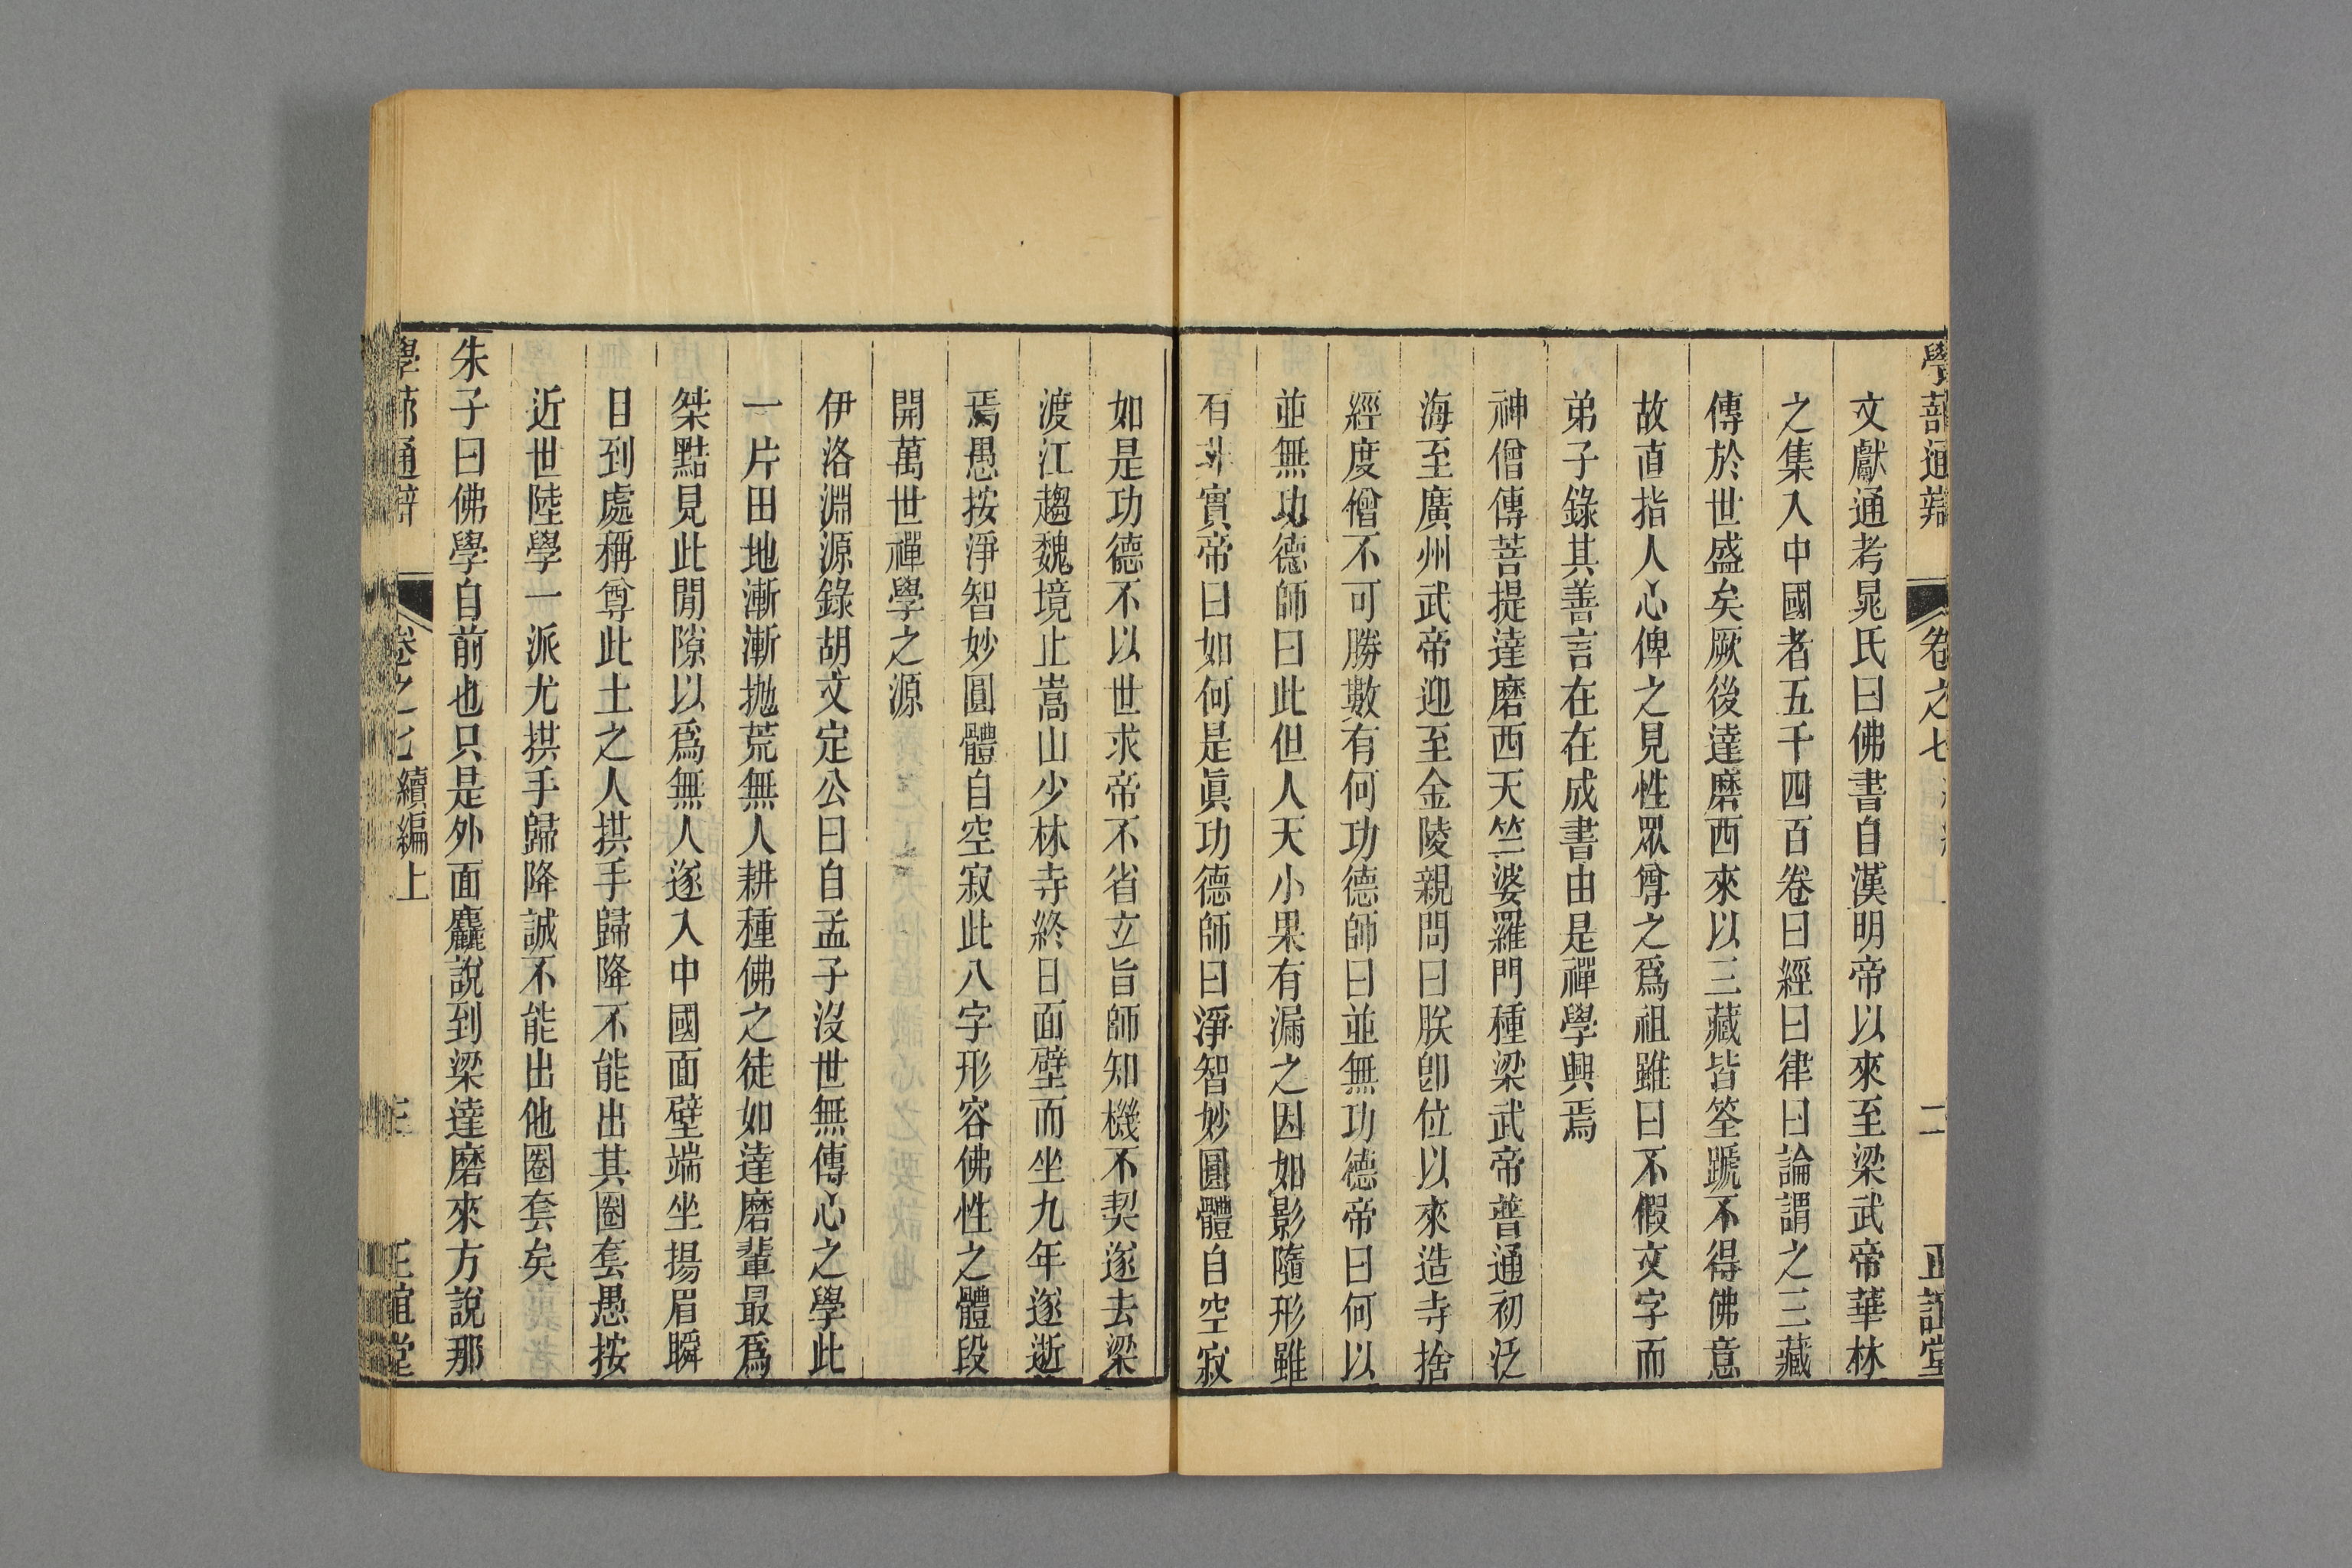 學蔀通辯 卷之七 二 正誼堂
文獻通考晁氏曰佛書自漢明帝以來至梁武帝華林
之集入中國者五千四百卷曰經曰律曰論謂之三藏
傳於世盛矣厥後達磨西來以三藏皆筌蹏不得佛意
故直指人心俾之見性眾尊之爲祖雖曰不假文字而
弟子錄其善言在在成書由是禪學興焉
神僧傳菩提達磨西天竺婆羅門種梁武帝普通初泛
海至廣州武帝迎至金陵親問曰朕卽位以來造寺捨
經度僧不可勝數有何功德師曰並無功德帝曰何以
並無功德師曰此但人天小果有漏之因如影隨形雖
有非實帝曰如何是眞功德師曰淨智妙圓體自空寂
如是功德不以世求帝不省立旨師知機不契遂去梁
渡江趨魏境止嵩山少林寺終日面壁而坐九年遂逝
焉愚按淨智妙圓體自空寂此八字形容佛性之體段
開萬世禪學之源
伊洛淵源錄胡文定公曰自孟子沒世無傳心之學此
一片田地漸漸拋荒無人耕種佛之徒如達磨輩最爲
桀黠見此閒隙以爲無人遂入中國面壁端坐揚眉瞬
目到處稱尊此土之人拱手歸降不能出其圈套愚按
近世陸學一派尤拱手歸降誠不能出他圈套矣
朱子曰佛學自前也只是外面麤說到梁達磨來方說那
學蔀通辯 卷之七 續編上 三 正誼堂